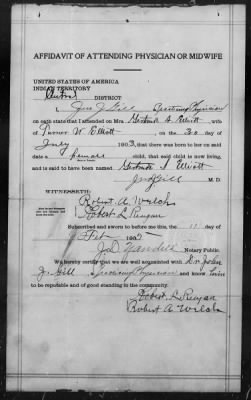 AFFIDAVIT OF ATTENDING PHYSICIAN OR MIDWIFE
UNITED STATES OF AMERICA
INDIAN TERRITORY
Central DISTRICT
I, Jno J Gill Practicing Physician
on oath state that I attended on Mrs. Gertrude A Elliott, wife
of Turner W Elliott, on the 30 day of
July, 1903, that there was born to her on said
date a female child, that said child is now living,
and is said to have been named Gertrude Elliott
Jno J Gill M. D.
WITNESSETH:
Robert A. Welch
Robert L Reagan
Subscribed and sworn to before me this, the 11 day of
Feb 1905
Notary Public.
We hereby certify that we are well acquainted with Dr John
J. Gill a Practicing Physician and know him
to be reputable and of good standing in the community.
Robert L Reagan
Robert A. Welch